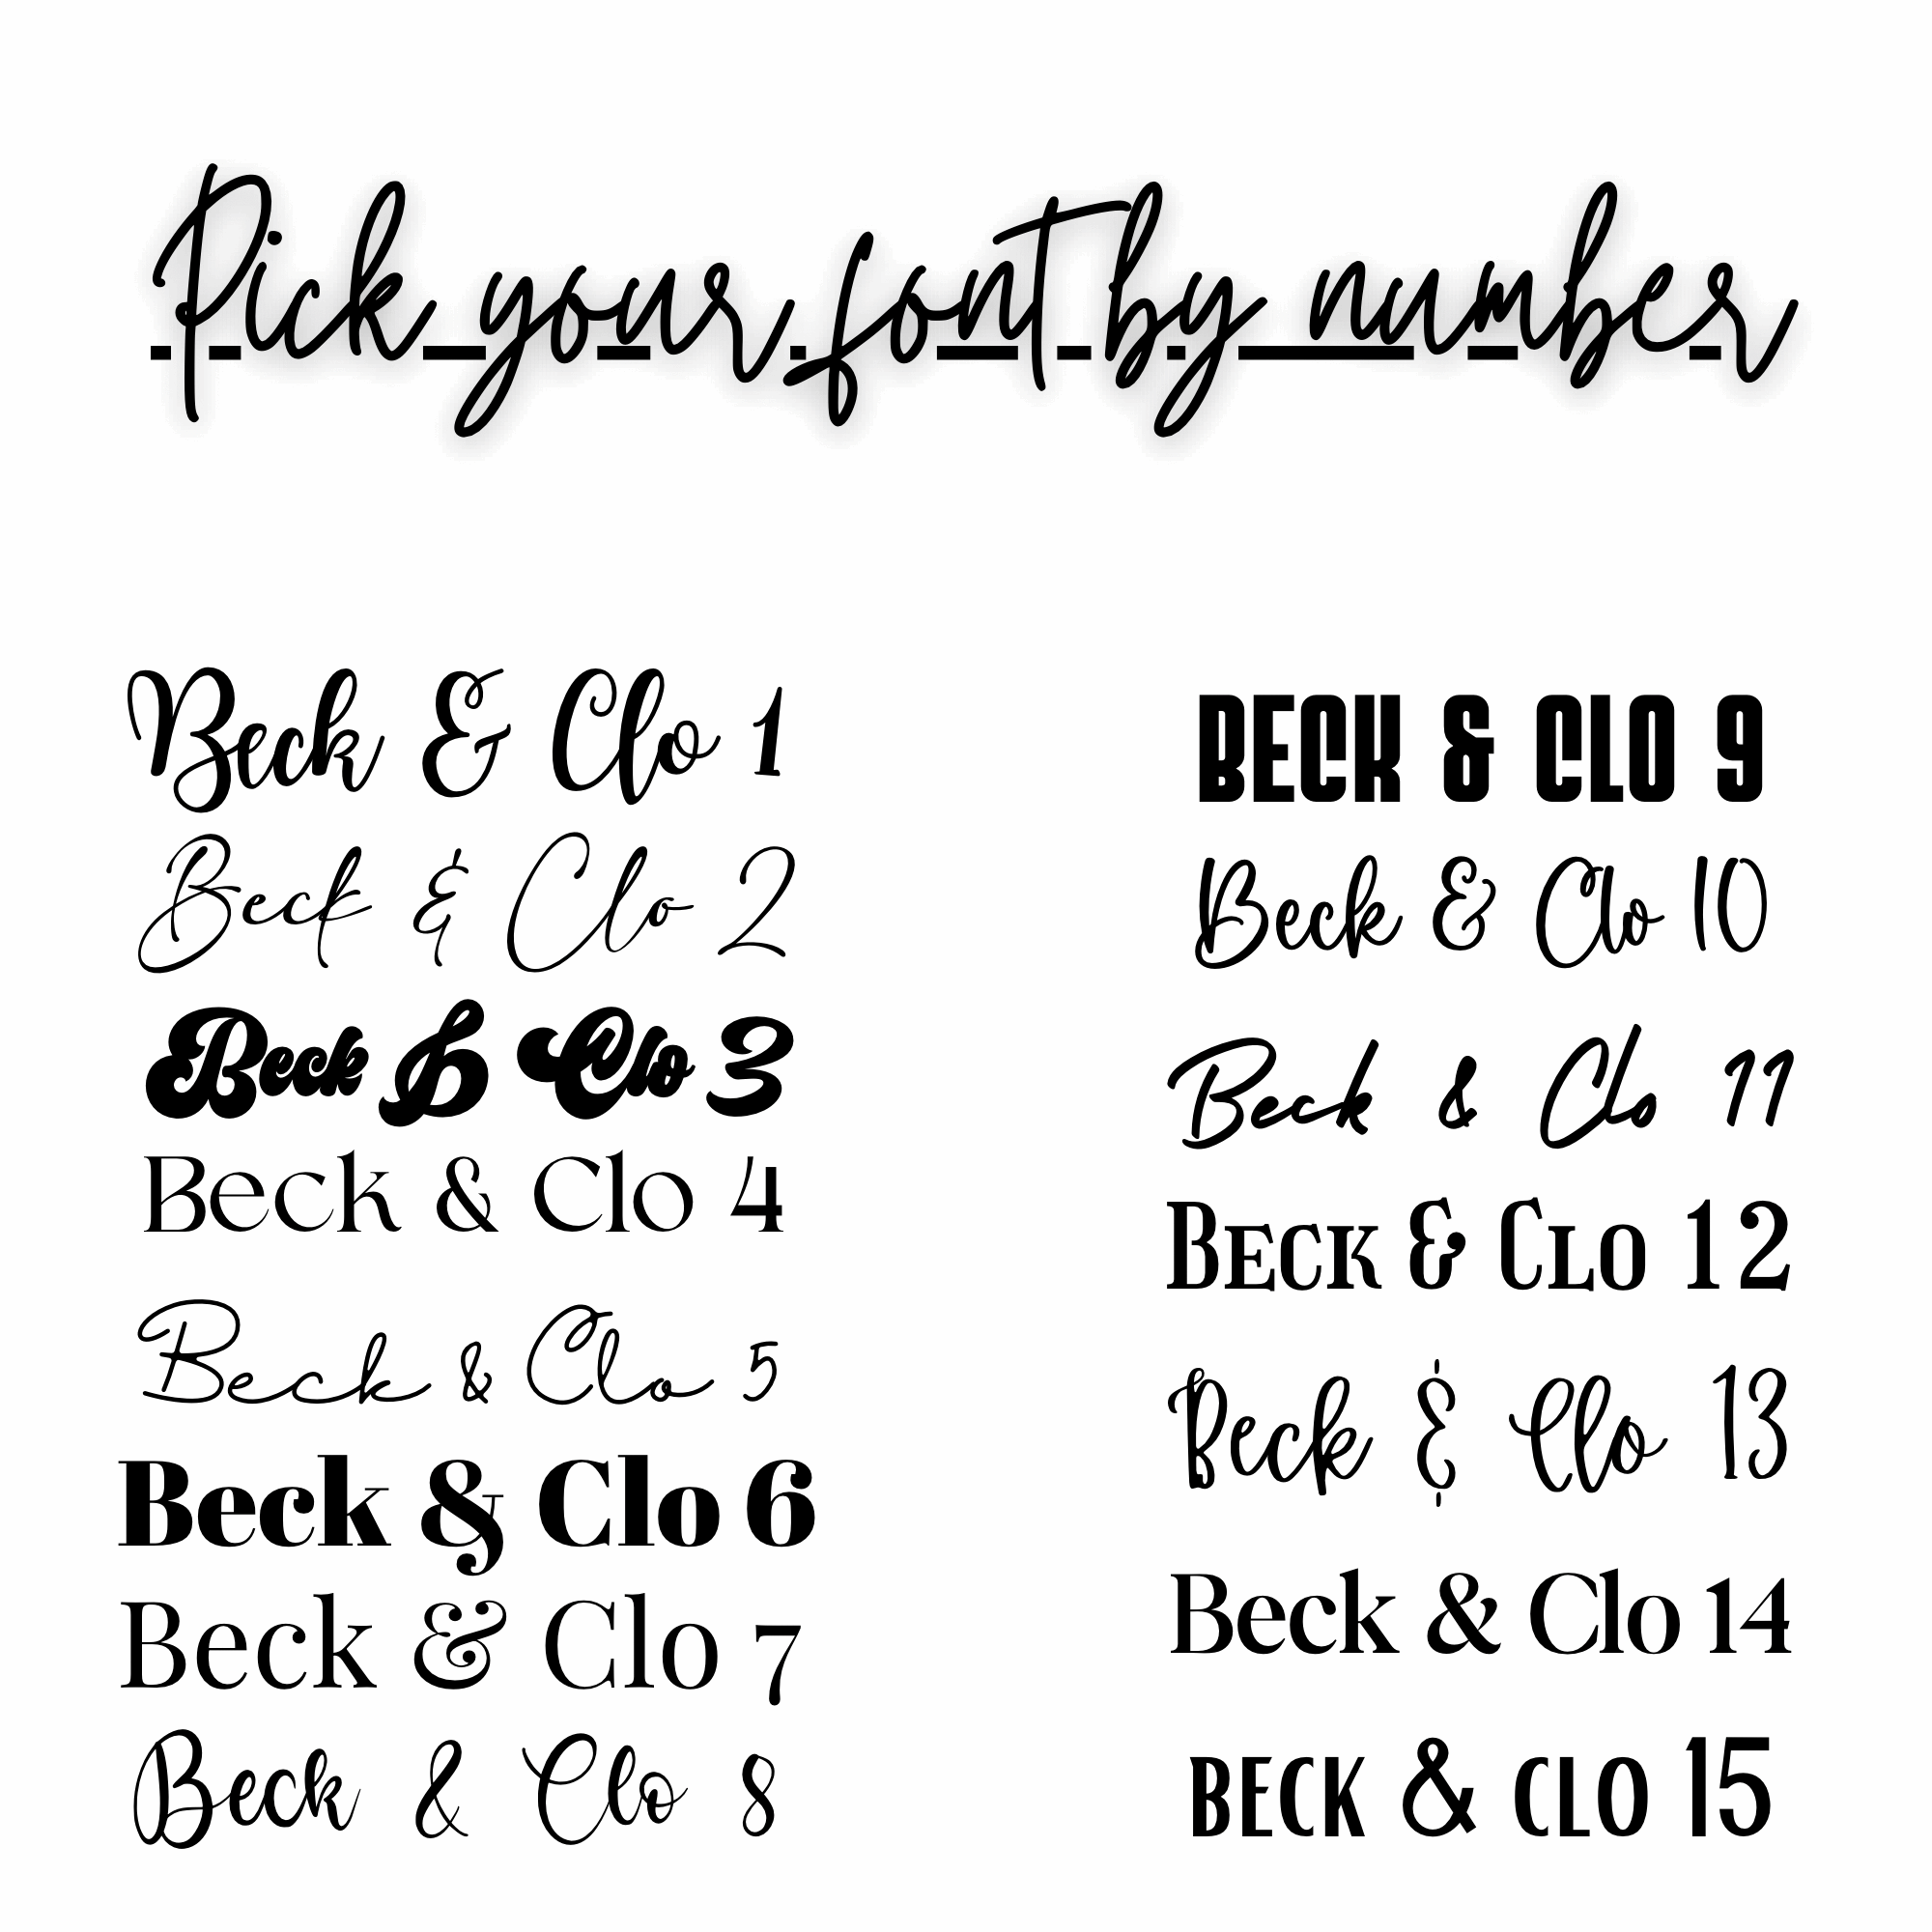 Pick your font by number
Beck & Clo 1
Beck & Clo 2
Beck & Clo 3
Beck & Clo 4
Beck & Clo 5
Beck & Clo 6
Beck & Clo 7
Beck & Clo 8
BECK & CLO 9
Beck & Clo 10
Beck & Clo 11
Beck & Clo 12
Beck & Clo 13
Beck & Clo 14
BECK & CLO 15